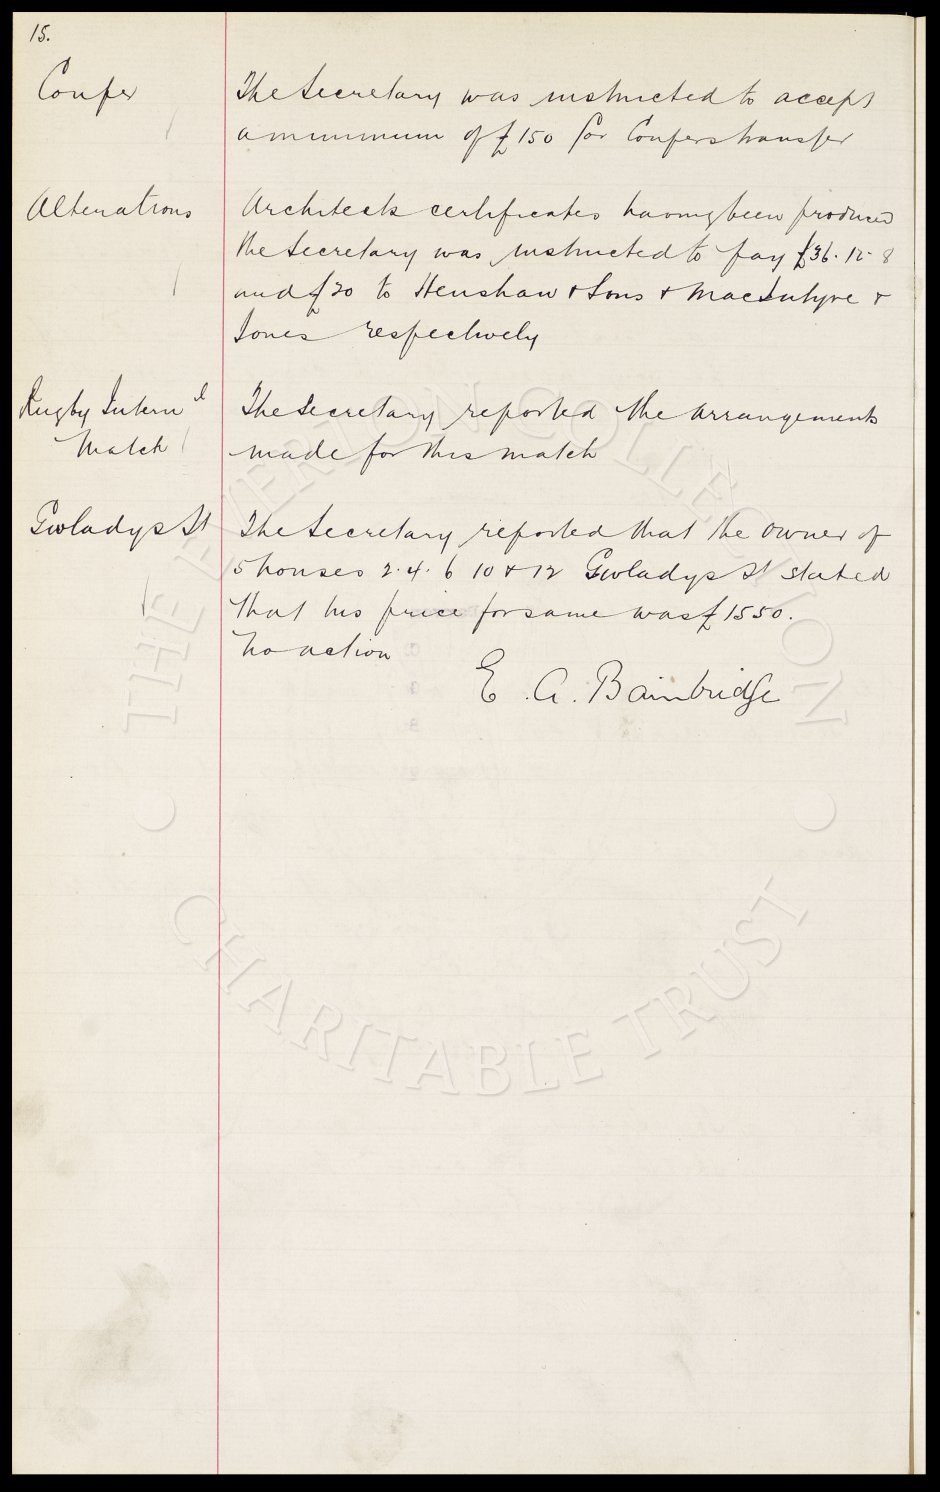 15.
Coufer
The Secretary was instructed to accept
a minimum of £150 for Coufers transfer
Alterations
Architects certificates having been produced
the Secretary was instructed to pay £36.12.8
and £20 to Henshaw & Sons & MacIntyre &
Jones respectively
Rugby Intern l
Match
The Secretary reported the arrangements
made for this match
Gwladys St
The Secretary reported that the owner of
5 houses 2.4.6 10 & 12 Gwladys St stated
that his price for same was £1550.
No action
E. A. Bainbridge
THE EVERTON COLLECTION
CHARITABLE TRUST